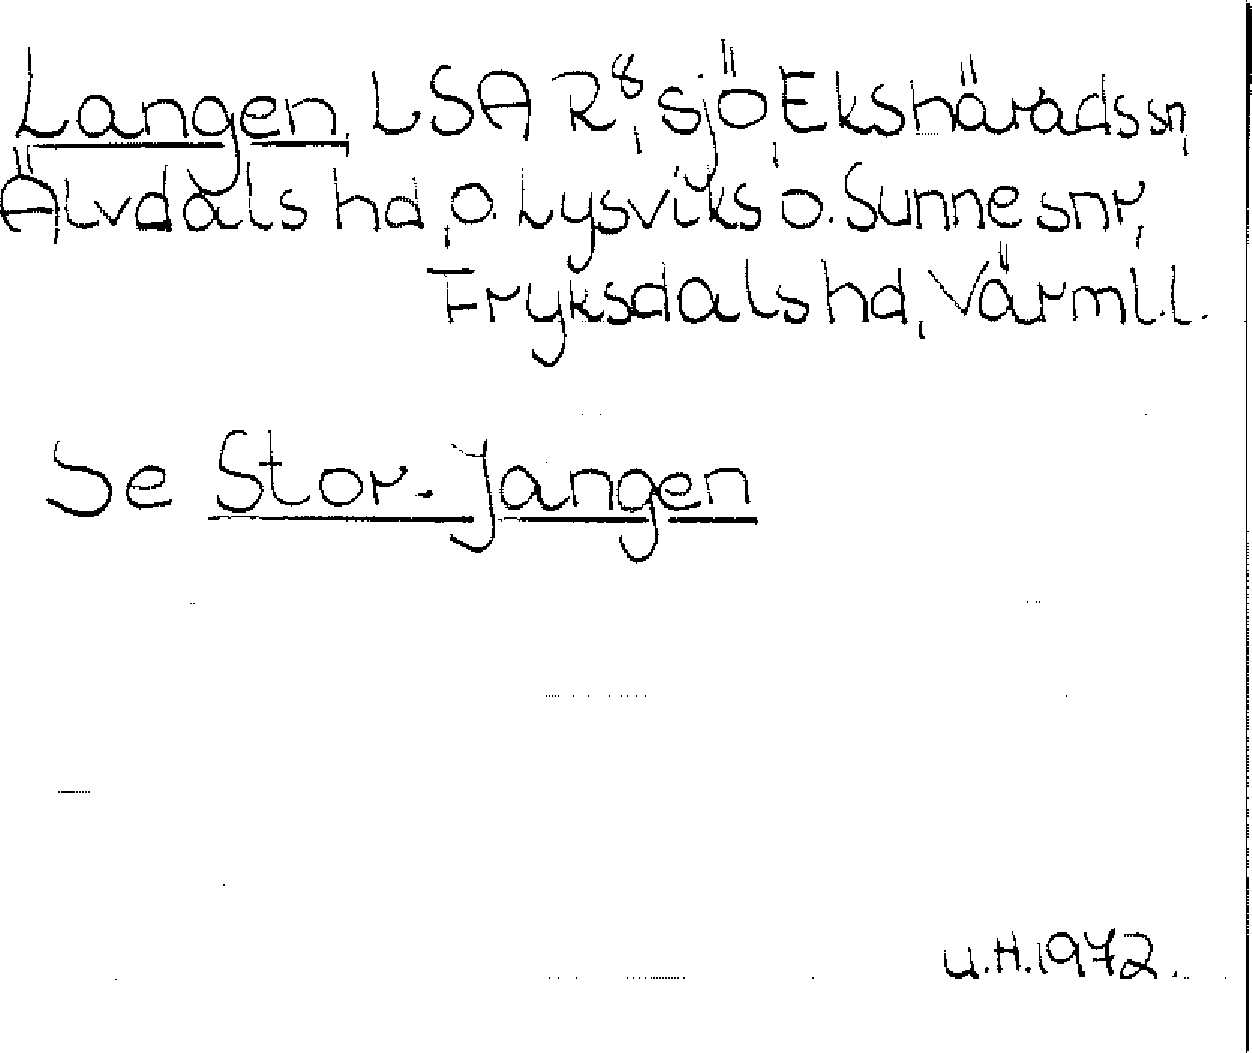 Langen, LSA R⁸, sjö, Ekshärads sn,
Älvdals hd, o. Lysviks o. Sunne snr,
Fryksdals hd, Värml.l.
Se Stor-Jangen
U.H.1972.